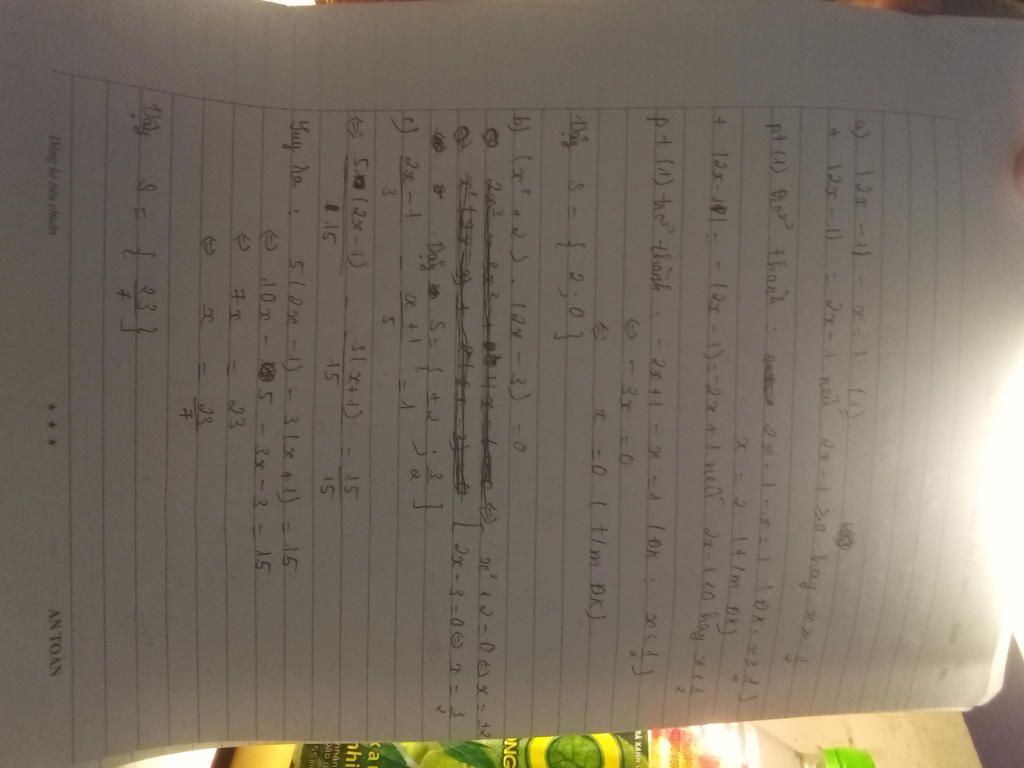 a) |2x - 1| - x = 1 (1)
+ |2x - 1| = 2x - 1 nếu 2x - 1 ≥ 0 hay x ≥ 1/2
pt (1) trở thành : 2x - 1 - x = 1 (ĐK: x ≥ 1/2)
x = 2 (t/m ĐK)
+ |2x - 1| = - (2x - 1) = -2x + 1 nếu 2x - 1 < 0 hay x < 1/2
pt (1) trở thành : - 2x + 1 - x = 1 (ĐK : x < 1/2)
⇔ - 3x = 0
⇔ x = 0 (t/m ĐK)
Vậy S = { 2 ; 0 }
b) (x² + 2) . (2x - 3) = 0
⇔ x² + 2 = 0 ⇔ x = ±2
2x - 3 = 0 ⇔ x = 3/2
Vậy S = { ±2 ; 3/2 }
c) (2x - 1)/3 - (x + 1)/5 = 1
⇔ 5(2x - 1)/15 - 3(x + 1)/15 = 15/15
Suy ra : 5(2x - 1) - 3(x + 1) = 15
⇔ 10x - 5 - 3x - 3 = 15
⇔ 7x = 23
⇔ x = 23/7
Vậy S = { 23/7 }
★ ★ ★
AN TOÀN